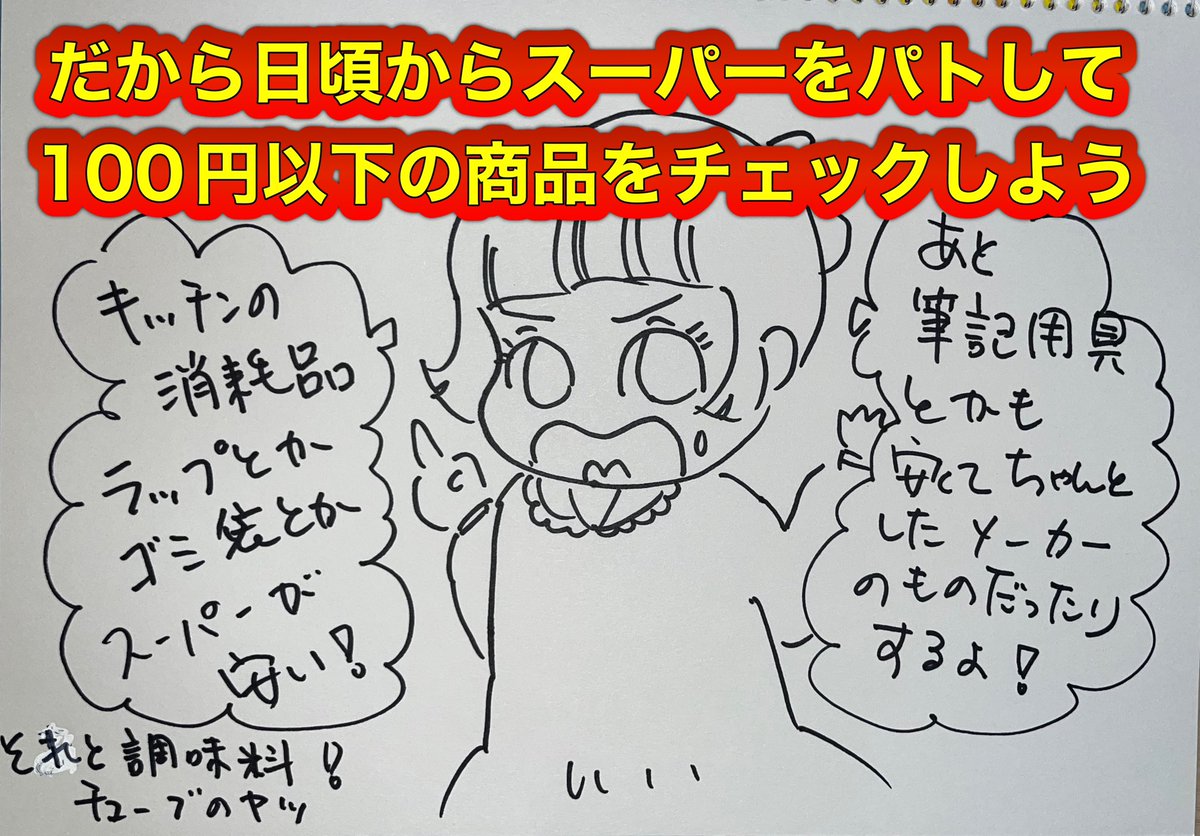 だから日頃からスーパーをパトして
100円以下の商品をチェックしよう
キッチンの
消耗品
ラップとか
ゴミ袋とか
スーパーが
安い!
あと
筆記用具
とかも
安くてちゃんと
したメーカー
のものだったり
するよ!
それと調味料!
チューブのヤツ